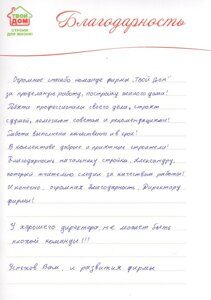 ТВОЙ ДОМ
СТРОИМ ДЛЯ ЖИЗНИ!
Благодарность
Огромное спасибо команде фирмы „Твой Дом“
за проделанную работу, постройку нашего дома!
Ребята профессионалы своего дела, строят
с душой, помогают советом и рекомендациями!
Работа выполнена качественно и в срок!
В коллективе добрые и приятные строители!
Благодарность начальнику стройки, Александру,
который тщательно следил за качеством работы!
И конечно, огромная благодарность, Директору
фирмы!
У хорошего директора не может быть
плохой команды!!!
Успехов Вам, и развития фирмы